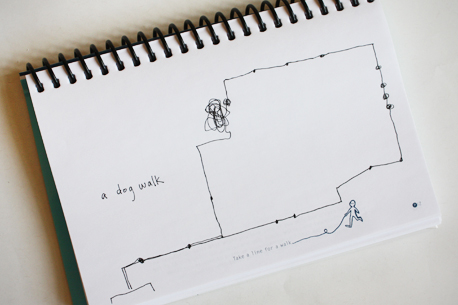 a dog walk
Take a line for a walk